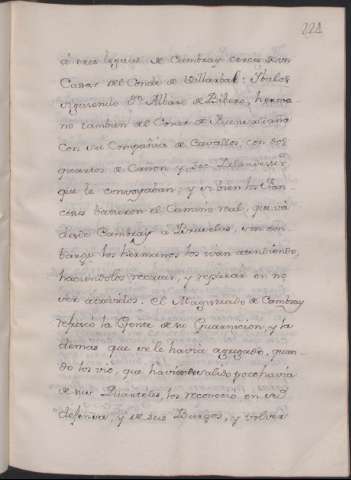 221
á tres leguas de Cambray cerca de un
Casar del Conde de Villarbal: Ibalos
siguiendo Dn. Albaro de Vibero, herma
no tambien del Conde de
con su Compañia de Cavallos, con dos
quartos de Cañon y
que le convoyaban; y si bien los Fran
ceses batieron el Camino real, que vá
desde Cambray á Bruselas, sin em
bargo los hermanos los ivan atendiendo,
haciendolos recular, y reparar en no
ser acavados. El Magistrado de Cambray
reforzó la Gente de su Guarnicion, y la
demas que se le havia agregado, quan
do los vió, que havian salido poco havia
de sus Quarteles, los reconoció en su
defensa, y de sus Burgos, y volvia